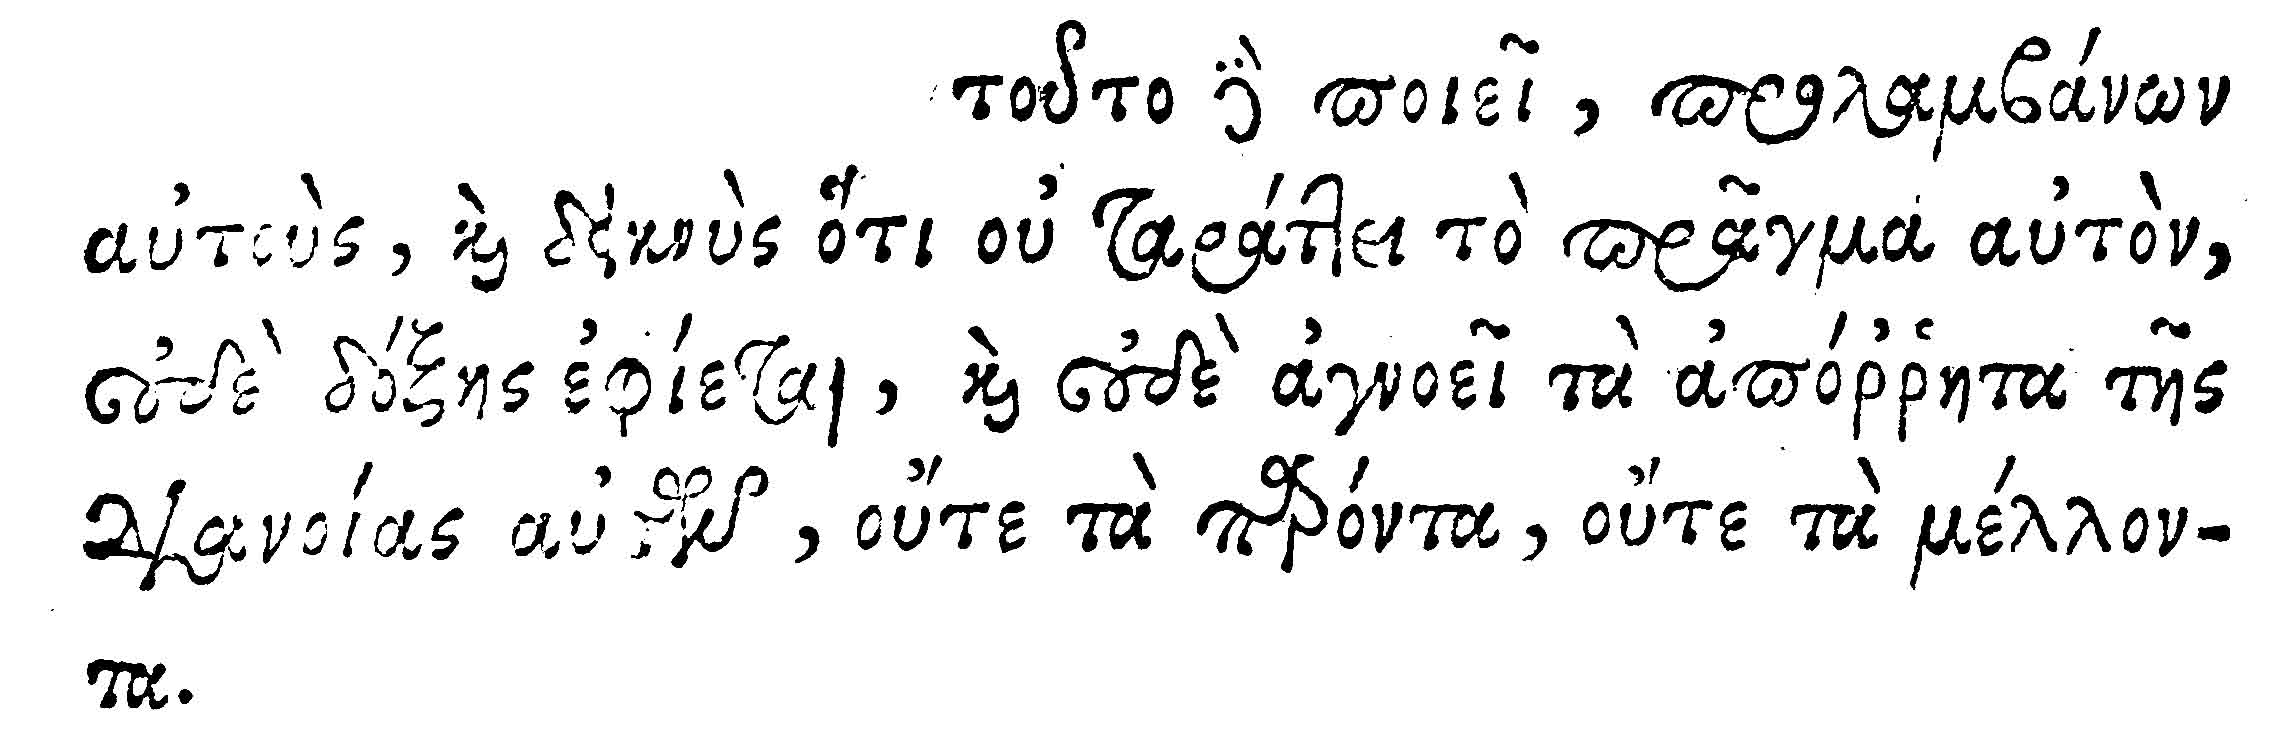 τοῦτο δὲ ποιεῖ, προλαμβάνων
αὐτοὺς, καὶ δεικνὺς ὅτι οὐ ταράττει τὸ πρᾶγμα αὐτὸν,
οὐδὲ δόξης ἐφίεται, καὶ οὐδὲ ἀγνοεῖ τὰ ἀπόῤῥητα τῆς
διανοίας αὐτῶν, οὔτε τὰ παρόντα, οὔτε τὰ μέλλον-
τα.